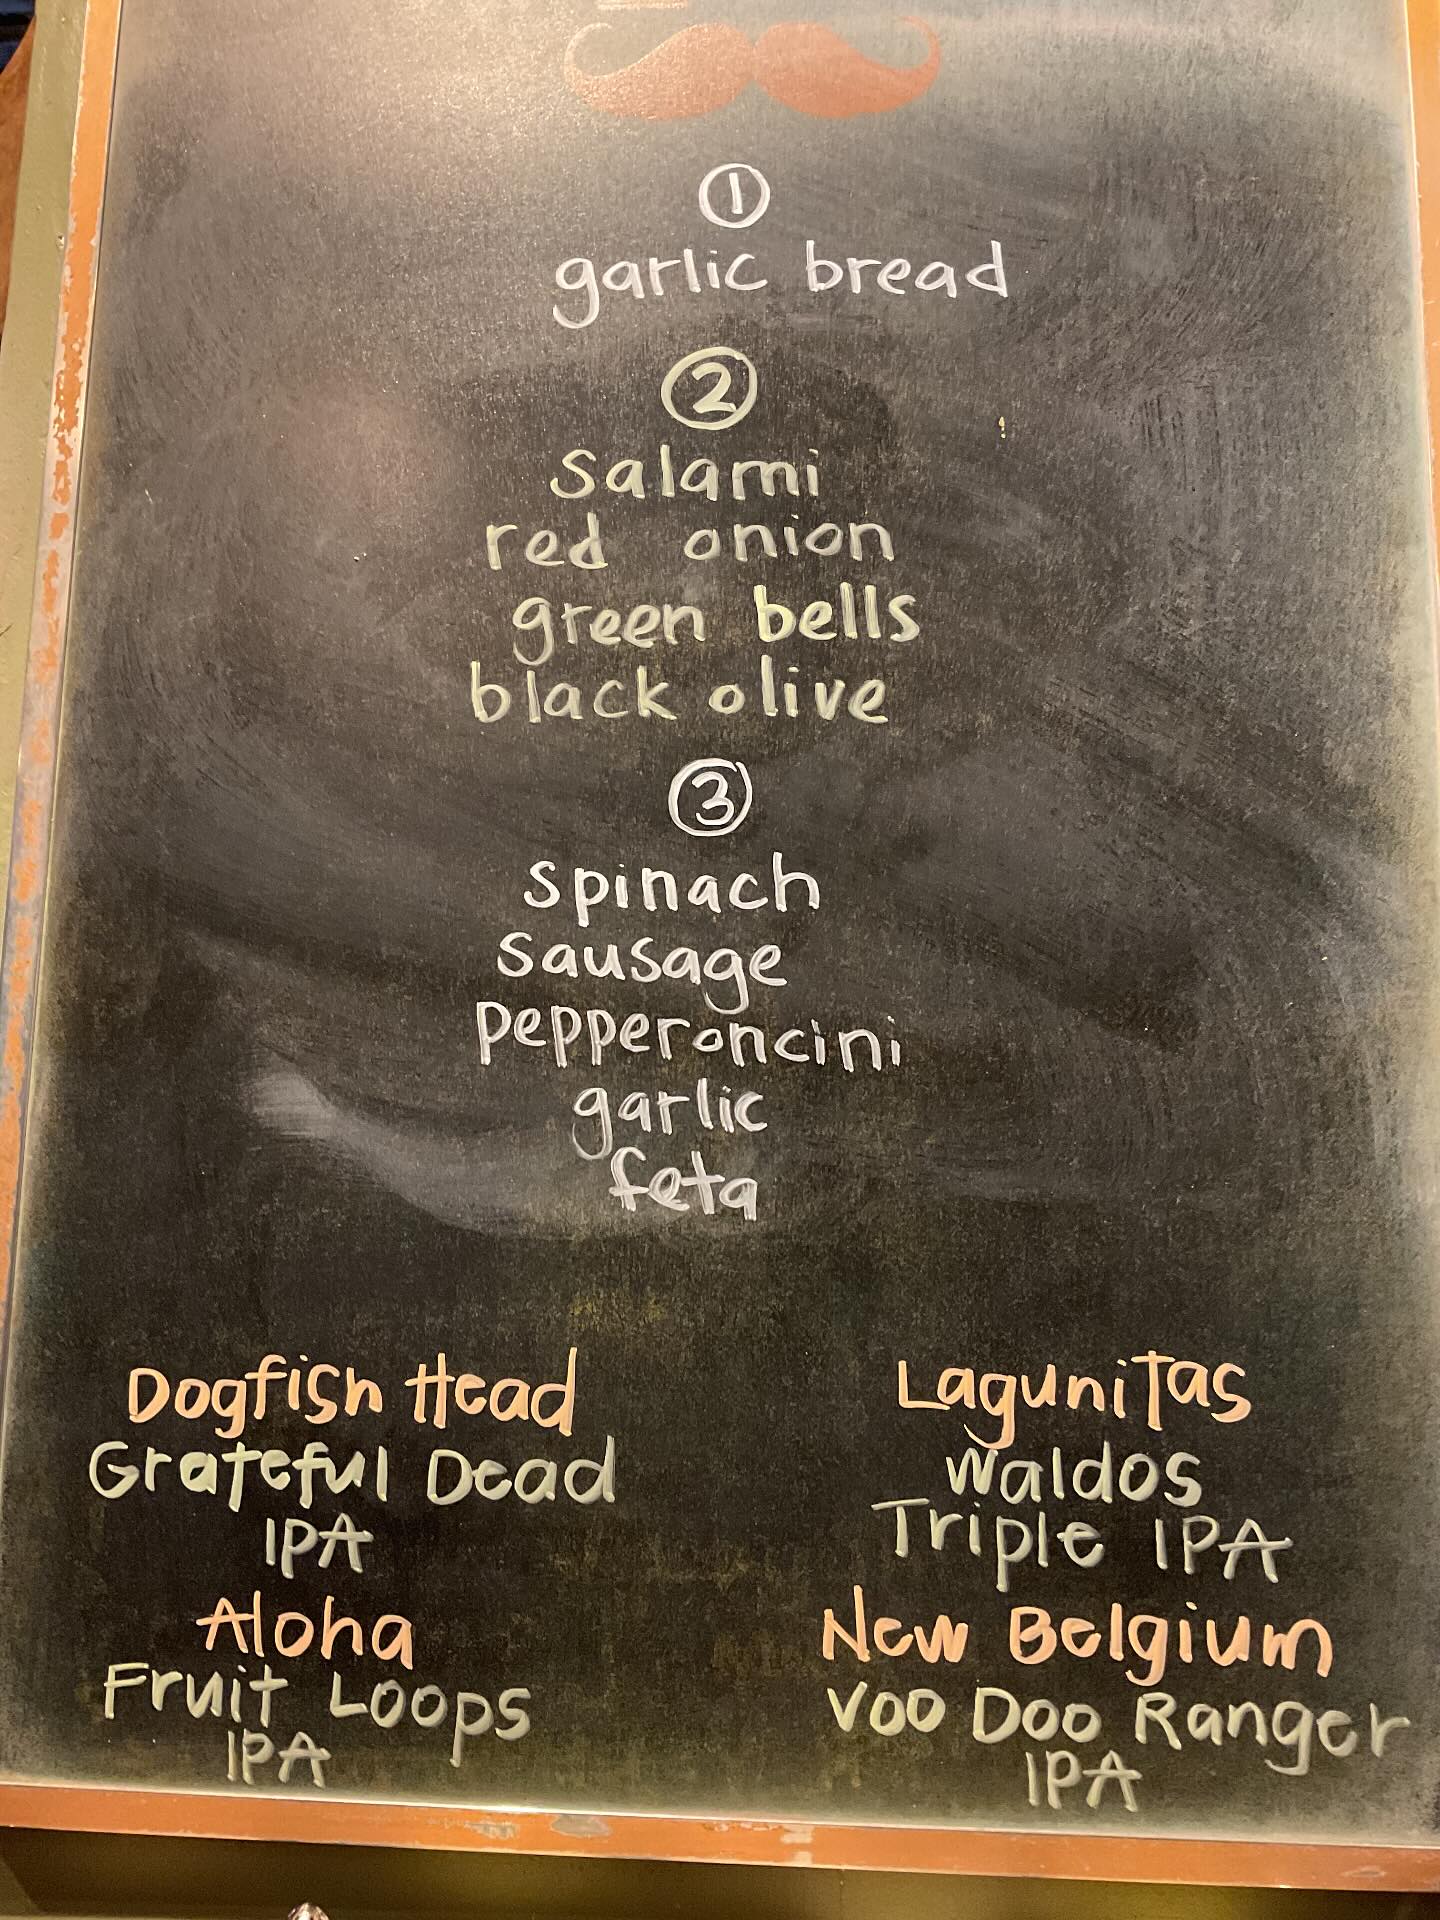 ①
garlic bread
②
salami
red onion
green bells
black olive
③
spinach
sausage
pepperoncini
garlic
feta
Dogfish Head
Grateful Dead
IPA
Aloha
Fruit Loops
IPA
Lagunitas
Waldos
Triple IPA
New Belgium
Voo Doo Ranger
IPA